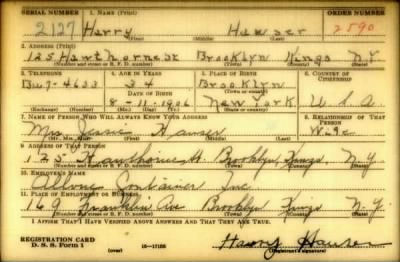 SERIAL NUMBER 1. NAME (Print) ORDER NUMBER
2127 Harry Hauser 2590
(First) (Middle) (Last)
2. ADDRESS (Print)
125 Hawthorne St Brooklyn Kings N.Y.
(Number and street or R. F. D. number) (Town) (County) (State)
3. TELEPHONE 4. AGE IN YEARS 5. PLACE OF BIRTH 6. COUNTRY OF CITIZENSHIP
34 Brooklyn
DATE OF BIRTH (Town or county)
Bu 7-4633 8-11-1906 New York U.S.A.
(Exchange) (Number) (Mo.) (Day) (Yr.) (State or country)
7. NAME OF PERSON WHO WILL ALWAYS KNOW YOUR ADDRESS 8. RELATIONSHIP OF THAT PERSON
Mrs. Jessie Hauser Wife
(Mr., Mrs., Miss) (First) (Middle) (Last)
9. ADDRESS OF THAT PERSON
125 Hawthorne St. Brooklyn, Kings, N.Y.
(Number and street or R. F. D. number) (Town) (County) (State)
10. EMPLOYER'S NAME
Container Inc.
11. PLACE OF EMPLOYMENT OR BUSINESS
169 Franklin Ave Brooklyn Kings N.Y.
(Number and street or R. F. D. number) (Town) (County) (State)
I AFFIRM THAT I HAVE VERIFIED ABOVE ANSWERS AND THAT THEY ARE TRUE.
REGISTRATION CARD
D. S. S. Form 1 (over) 16-17105 Harry Hauser
(Registrant's signature)